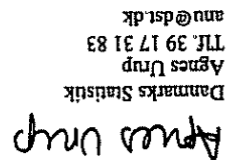 Agnes Urup
Danmarks Statistik
Agnes Urup
Tlf. 39 17 31 83
anu@dst.dk